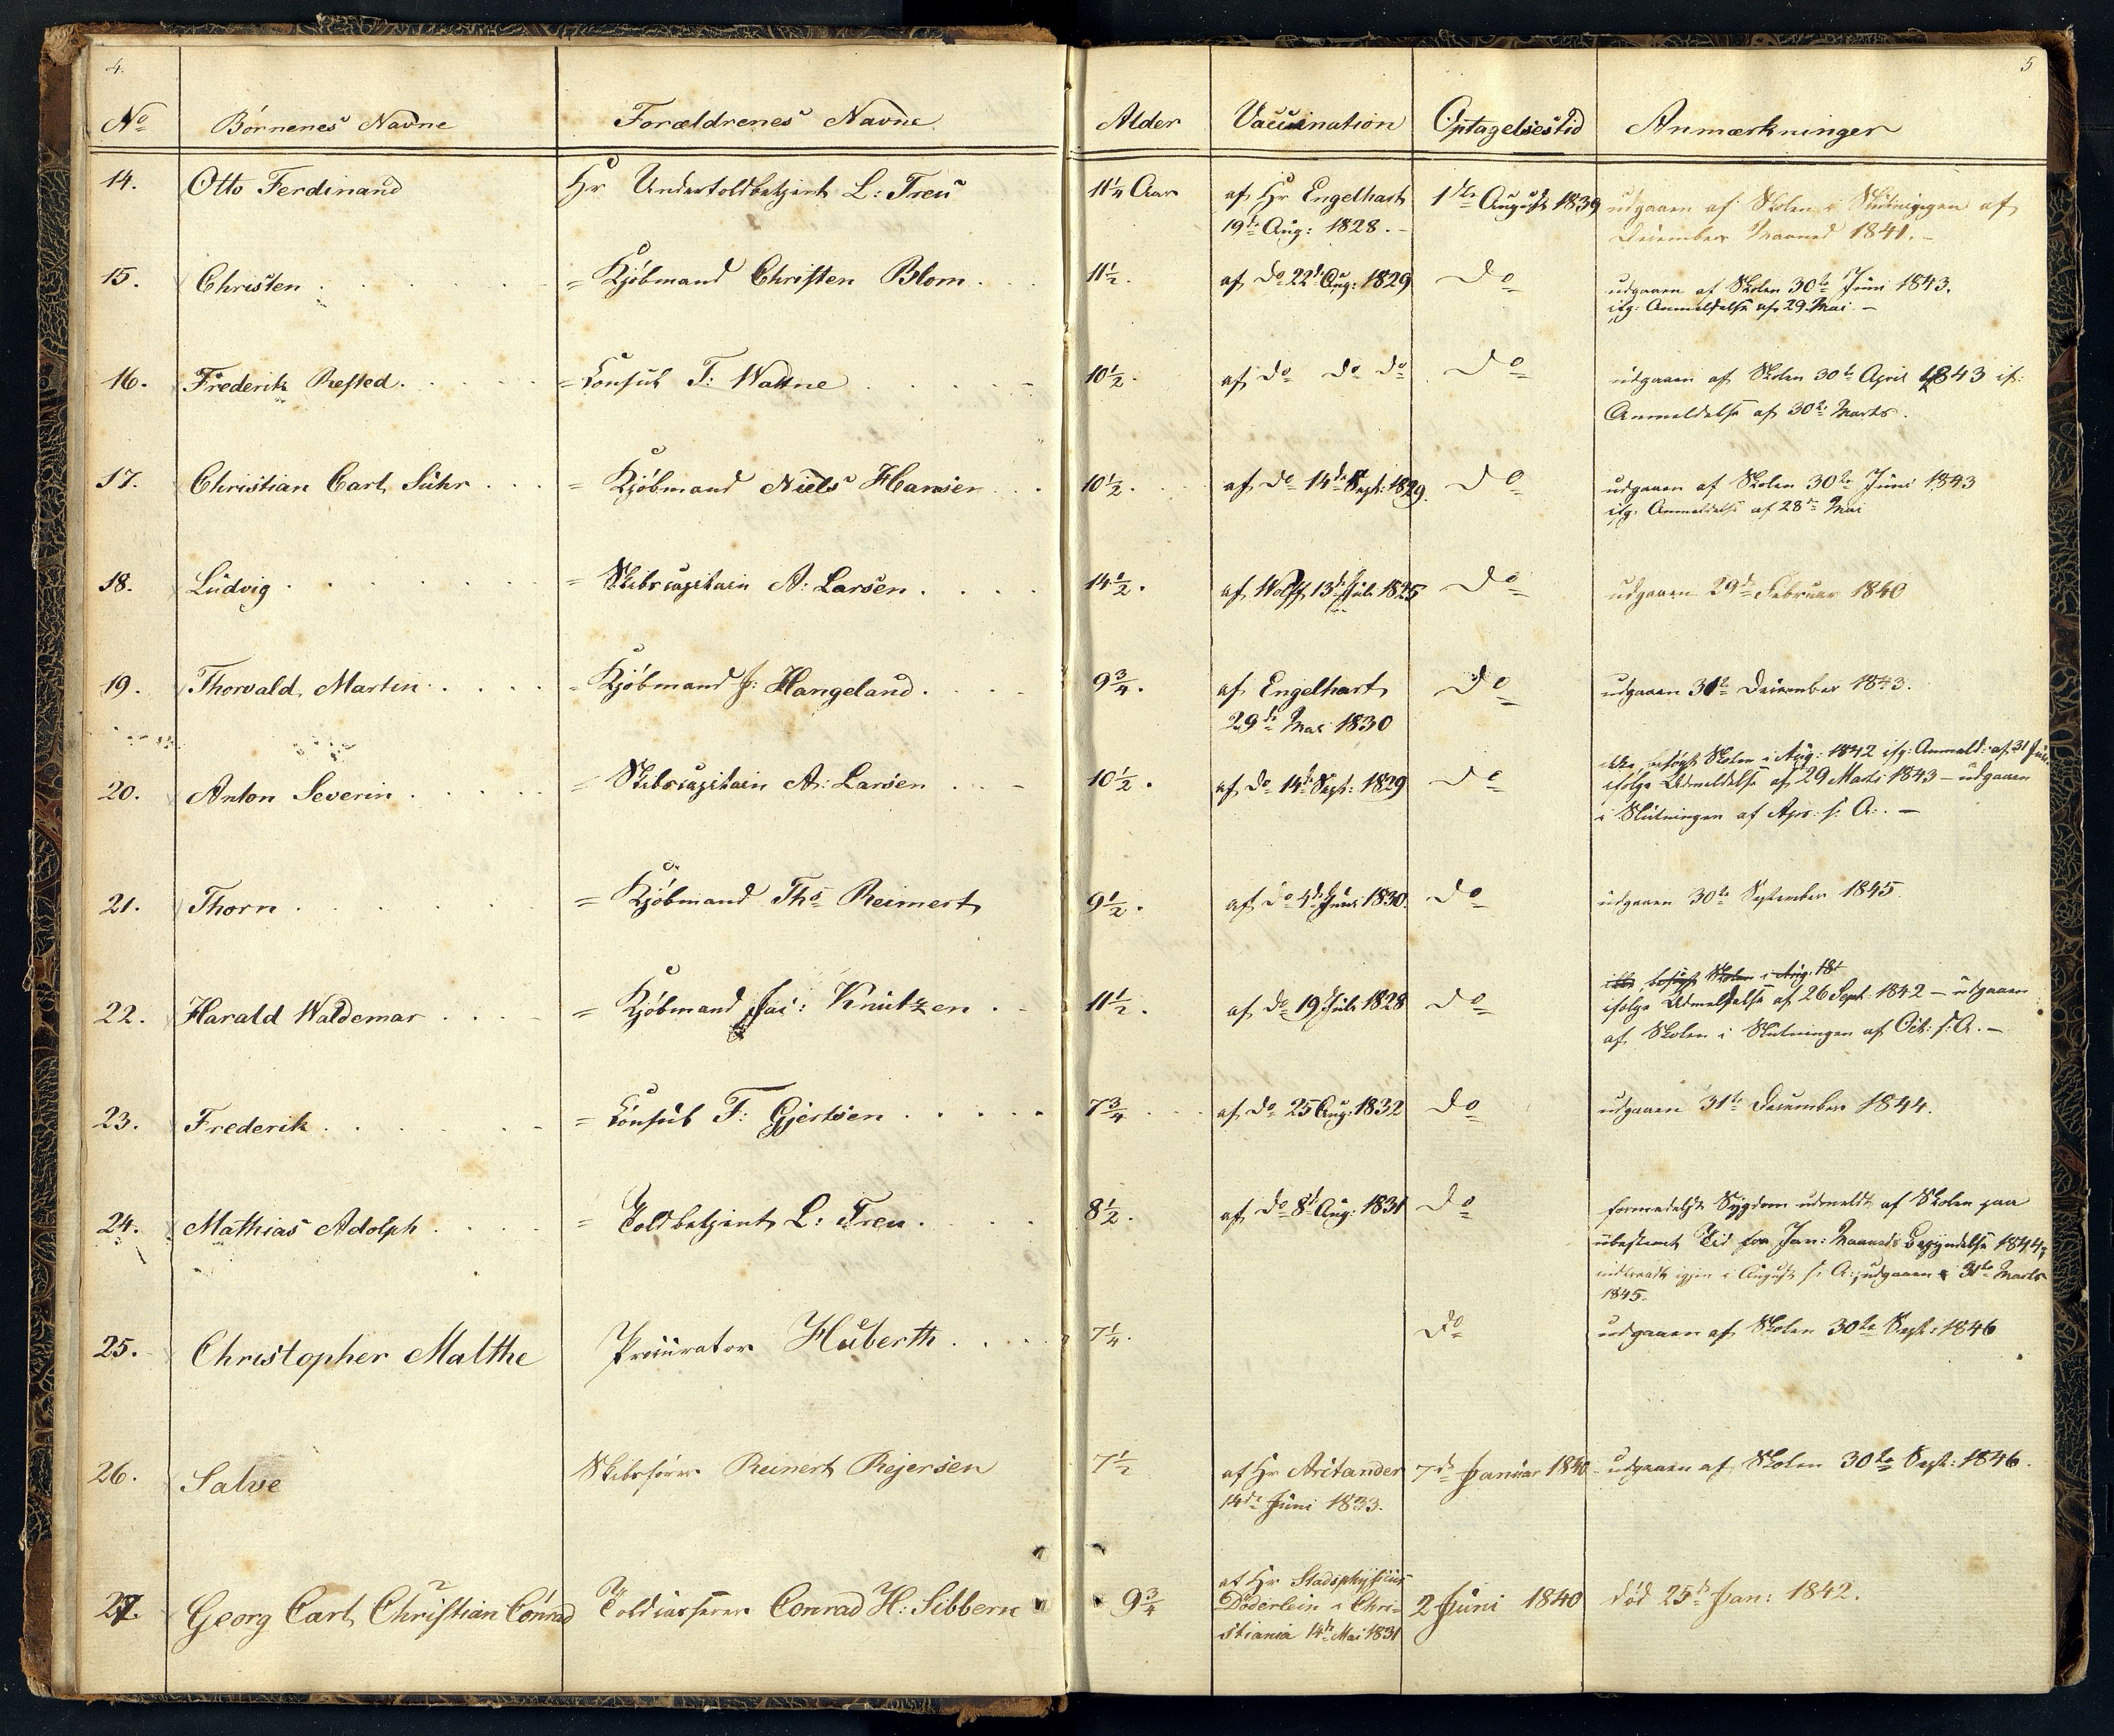 4.
5
No Børnenes Navne Forældrenes Navne Alder Vaccination Optagelsestid Anmærkninger
14. Otto Ferdinand Hr Undertoldbetjent L: Treu 11¼ Aar af Hr Engelhart 1ste August 1839 udgaaen af Skolen i Slutningen af
19de Aug: 1828. - December Maaned 1841. -
15. Christen = Kjøbmand Christen Blom 11½. af Do 22de Aug: 1829 Do udgaaen af Skolen 30te Juni 1843.
ifg: Anmeldelse af 29 Mai. -
16. Frederik Refsted = Consul T: Wattne 10½. af Do Do Do Do udgaaen af Skolen 30te April 1843 if:
Anmeldelse af 30te Marts.
17. Christian Carl Suhr = Kjøbmand Niels Hansen 10½. af Do 14de Sept: 1829. Do udgaaen af Skolen 30te Juni 1843
ifg. Anmeldelse af 28de Mai
18. Ludvig = Skibscapitain A: Larsen 14½. af Wolff 13de Juli 1825 Do udgaaen 29de Februar 1840
19. Thorvald Martin = Kjøbmand J: Hangeland 9¾. af Engelhart Do udgaaen 31te December 1843.
29de Mai 1830
20. Anton Severin = Skibscapitain A: Larsen 10½. af Do 14de Sept: 1829 Do ikke besøgt Skolen i Aug: 1842 ifg: Anmeld: af 31 Juli
ifølge Udmeldelse af 29 Marts 1843 - udgaaen
i Slutningen af Apr: s. A: . -
21. Thorn = Kjøbmand Ths Reimert 9½. af Do 4de Juni 1830. Do udgaaen 30te September 1845.
22. Harald Waldemar = Kjøbmand Jac: Knutzen 11½. af Do 19 Juli 1828 Do ikke besøgt Skolen i Aug: 18
ifølge Udmeldelse af 26 Sept: 1842 - udgaaen
af Skolen i Slutningen af Oct: s: A. -
23. Frederik = Consul T: Gjertsen 7¾ af Do 25 Aug: 1832 Do udgaaen 31te December 1844.
24. Mathias Adolph = Toldbetjent L: Treu 8½. af Do 8de Aug: 1831 Do formedelst Sygdom udmeldt af Skolen paa
ubestemt Tid fra Jan: Maaneds Begyndelse 1844;
indtraadt igjen i August s: A: ; udgaaen 31te Marts
1845.
25. Christopher Malthe Procurator Huberth 7¼. Do udgaaen af Skolen 30te Sept: 1846
26. Salve Skibsfører Reinert Rejersen 7½ af Hr Aritander 7de Januar 1840 udgaaen af Skolen 30te Sept: 1846.
14de Juni 1833.
27. Georg Carl Christian Conrad Toldcasserer Conrad H: Sibbern 9¾ af Hr Stadsphysicus 2 Juni 1840 død 25de Jan: 1842.
Døderlein i Chri-
stiania 14de Mai 1831